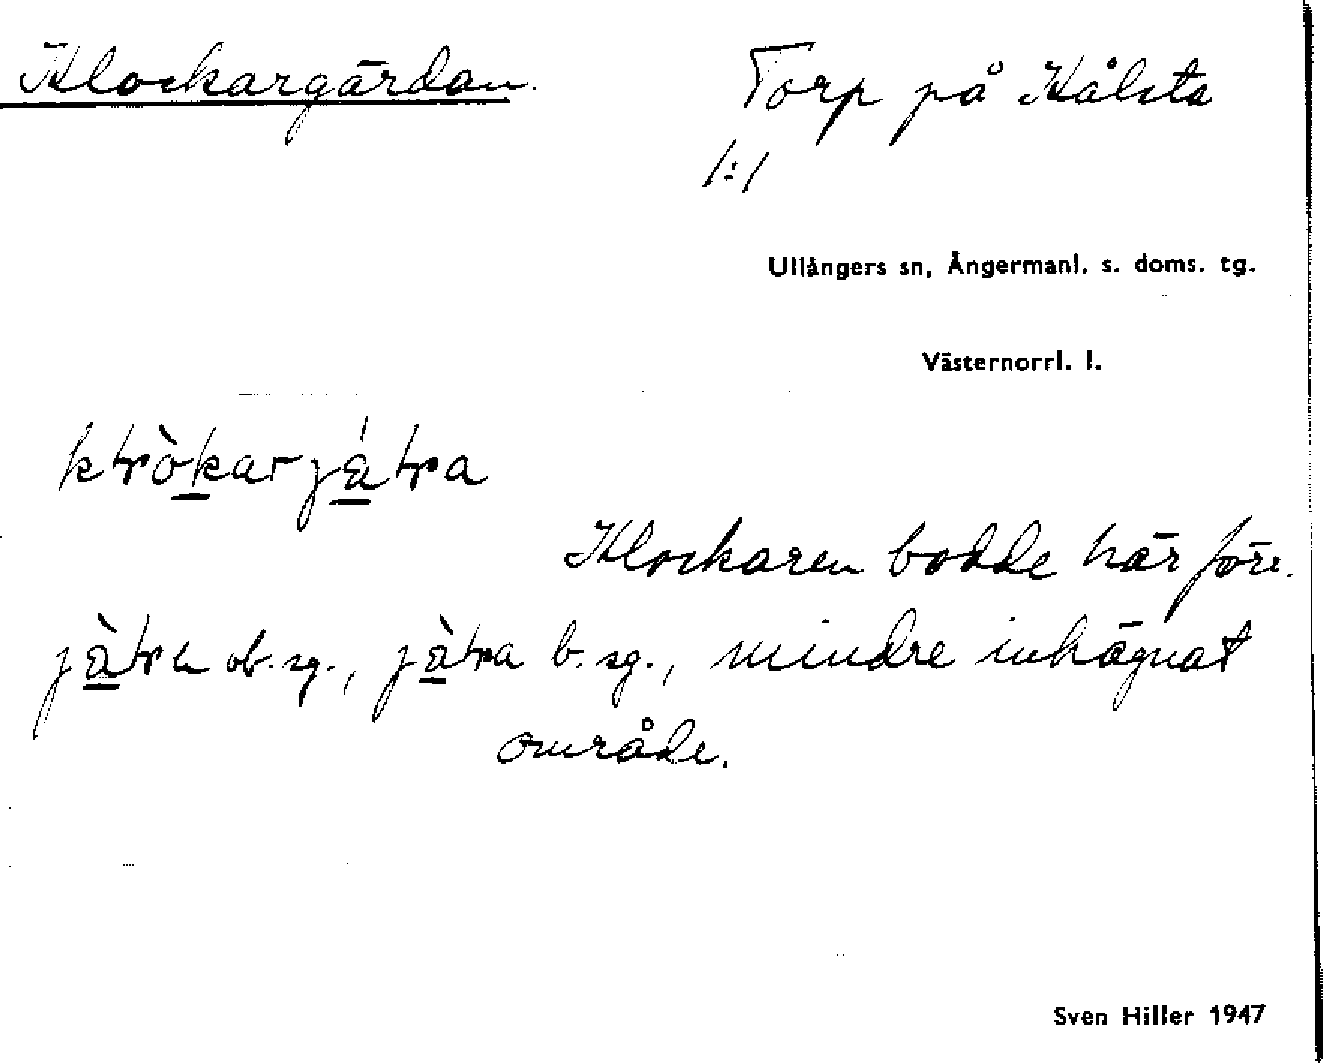 Klockargärdan. Torp på Kålsta
1:1
Ullångers sn, Ångermanl. s. doms. tg.
Västernorrl. l.
Klockaren bodde här förr.
ob. sg., b. sg., mindre inhägnat
område.
Sven Hiller 1947